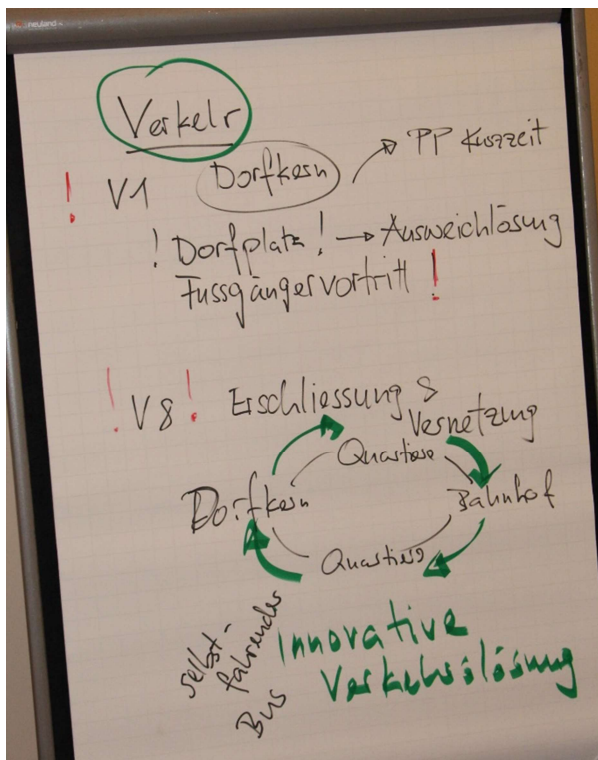 neuland
Verkehr
! V1 Dorfkern → PP Kurzzeit
! Dorfplatz ! → Ausweichlösung
Fussgängervortritt !
! V8 ! Erschliessung &
Vernetzung
Quartiere
Dorfkern Bahnhof
Quartiere
selbst-
fahrender
Bus
Innovative
Verkehrslösung